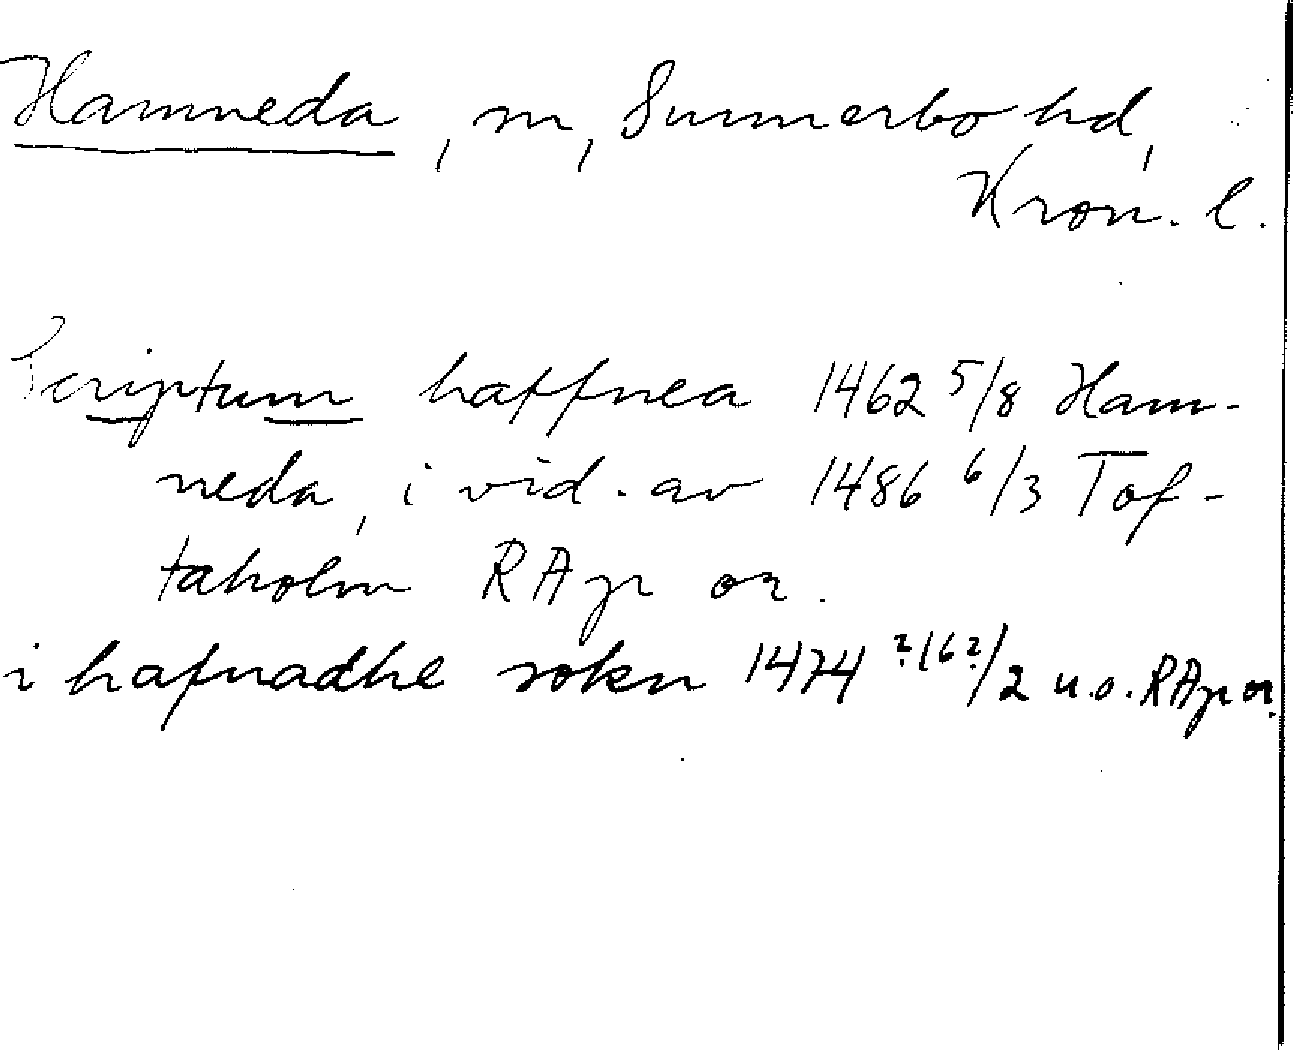 Hamneda, sn, Sunnerbo hd,
Kron. l.
Scriptum haffnea 1462 5/8 Ham-
neda, i vid. av 1486 6/3 Tof-
taholm RAp or.
i hafnadhe sokn 1474 ?16?/2 u.o. RAp or.